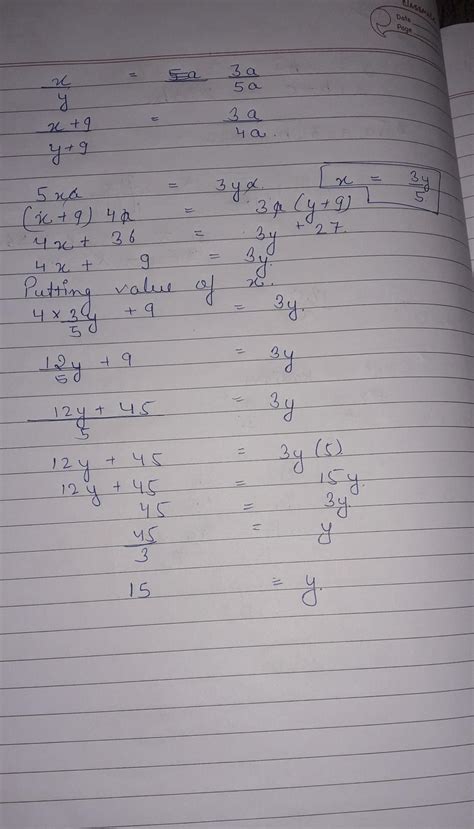 CLASSMATE
Date
Page
x/y = 3a/5a
(x+9)/(y+9) = 3a/4a.
5xa = 3ya. x = 3y/5
(x+9) 4a = 3a (y+9)
4x + 36 = 3y + 27.
4x + 9 = 3y.
Putting value of x.
4 × 3y/5 + 9 = 3y.
12y/5 + 9 = 3y
(12y + 45)/5 = 3y
12y + 45 = 3y (5)
12y + 45 = 15y.
45 = 3y.
45/3 = y
15 = y.